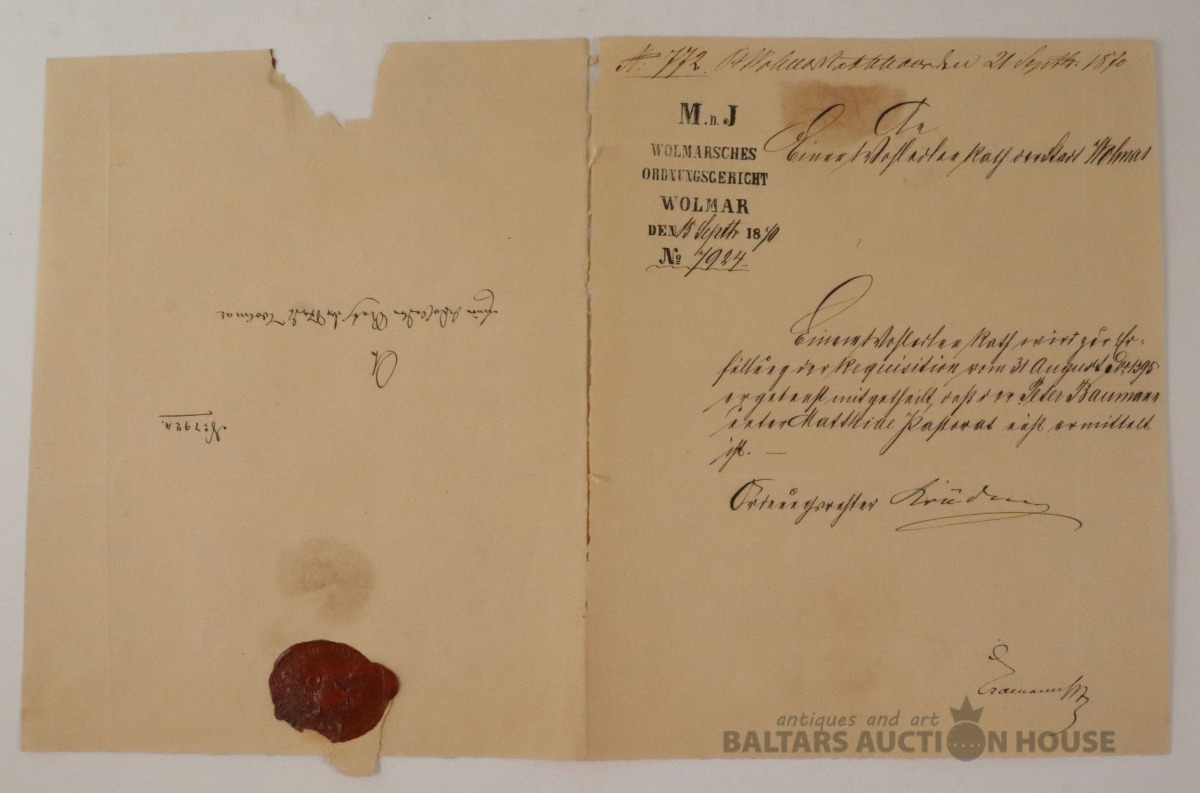 № 772. Wolmar Rathhause den 21 Septbr. 1870
M.d.J
WOLMARSCHES
ORDNUNGSGERICHT
WOLMAR
DEN 15 Septbr 1870
№ 7924.
An
Einen Wohledlen Rath der Stadt Wolmar
Einem Wohledlen Rath wird zur Er-
füllung der Requisition vom 31 August 1395
ergebenst mitgetheilt, daß der Peter Baumann
unter Matthiae Pastorat nicht ermittelt
ist. —
Ordnungsrichter Krüdener
An
Einen Wohledlen Rath der Stadt Wolmar
№ 7924.
antiques and art
BALTARS AUCTION HOUSE